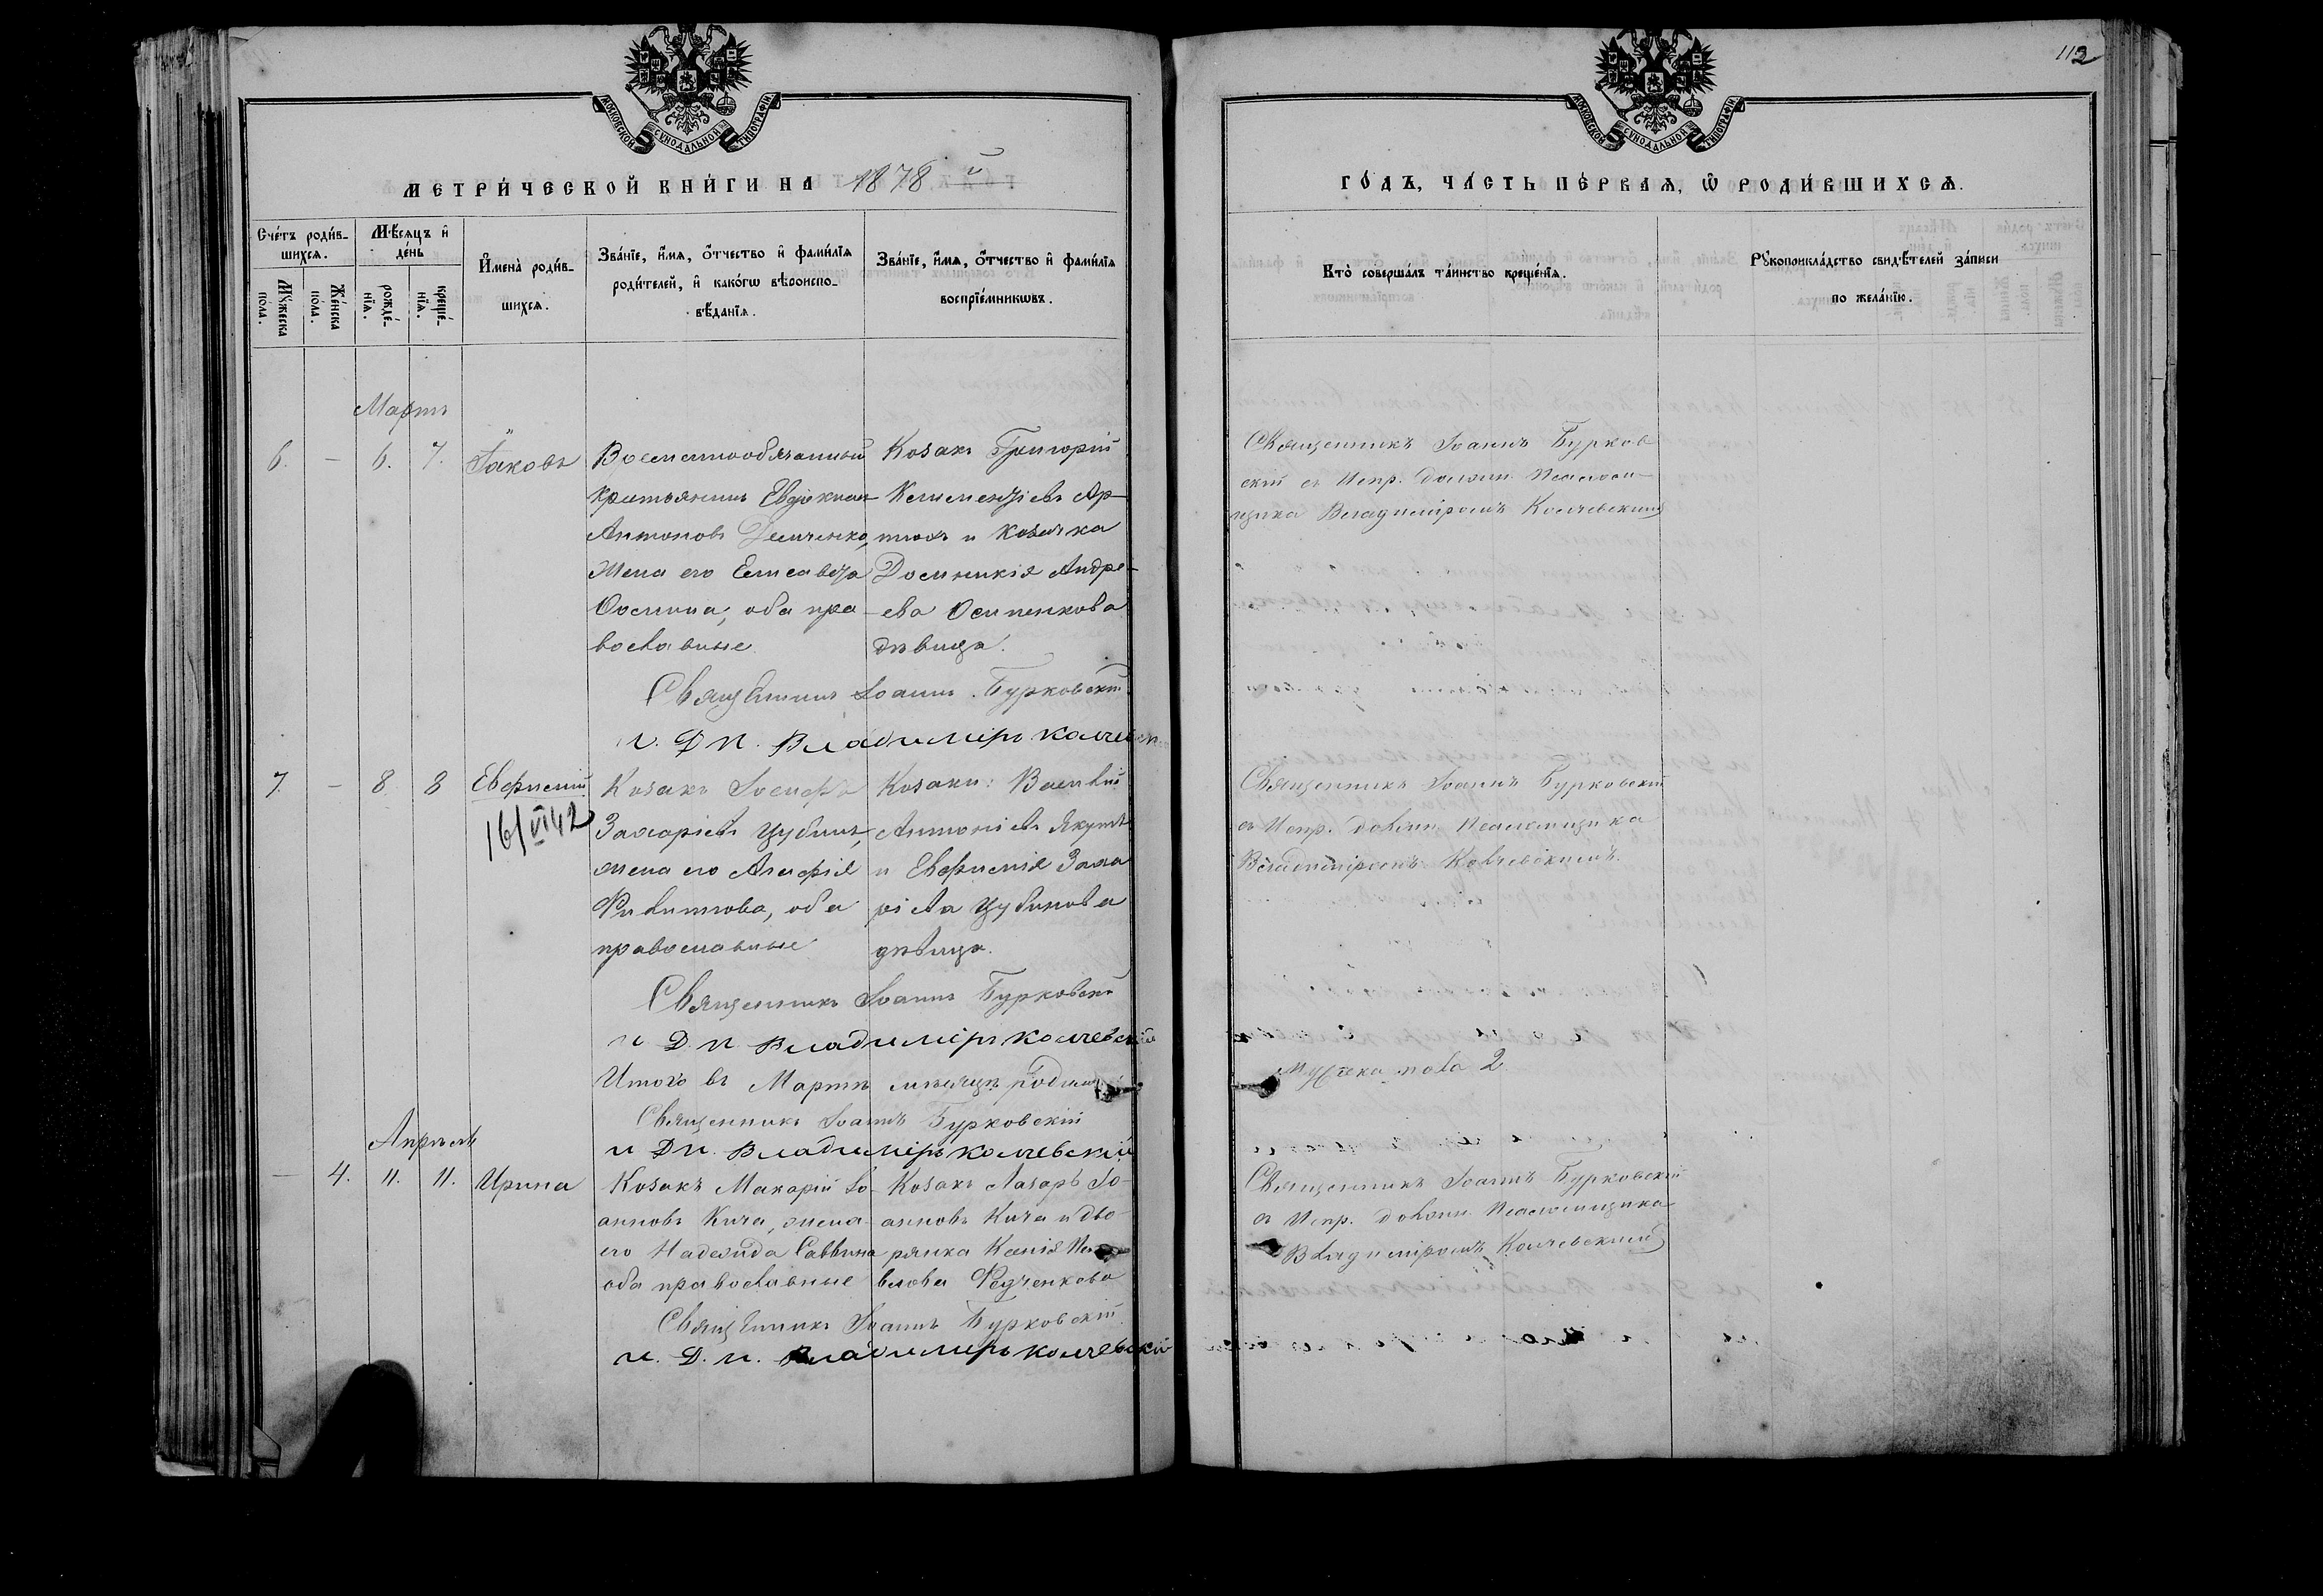 112
МОСКОВСКОЙ СУНОДАЛЬНОЙ ТИПОГРАФІИ
МЕТРИ́ЧЕСКОЙ КНИ́ГИ НА 1878 й
Сче́тъ роди́в-
шихсѧ.
Мѣ́сяцъ и҆
де́нь
Мꙋ́жеска
по́ла.
Же́нска
по́ла.
рожде́-
нїѧ.
креще́-
нїѧ.
И҆мена̀ роди́в-
шихсѧ.
Зва́нїе, и҆́мѧ, ѻ҆́тчество и҆ фами́лїѧ
роди́телей, и҆ како́гѡ вѣроиспо-
вѣ́данїѧ.
Зва́нїе, и҆́мѧ, ѻ҆́тчество и҆ фами́лїѧ
воспрїе́мникѡвъ.
Мартъ
6. — 6. 7. Іаковъ
Козакъ Григорій
крестьянинъ Евдокимъ
Антоновъ Демченко,
Жена его Елисавета
оба пра
вославные
Климентіевъ Ар-
тюхъ и козачка
Домникія Андре-
ева Осипенкова
дѣвица.
Священникъ Іоаннъ Бурковскій
и. Д п. Владиміръ Колчевск
7. — 8 8 Евфимій
16/VI 42
Козакъ Іосифъ
Захаріевъ Цубинъ,
жена его Агафія
оба
православные
Козаки: Василій
Антоніевъ Якутъ
и Евфимія Заха
ріева Цубинова
дѣвица.
Священникъ Іоаннъ Бурковскій
и Д. п. Владиміръ Колчевскій
Итого въ Мартѣ мѣсяцѣ родил
Священникъ Іоаннъ Бурковскій
и Д п. Владиміръ Колчевскій
Апрѣль
— 4. 11. 11. Ирина
Козакъ Макарій Іо-
анновъ Кича, жена
его Надежда Саввина
оба православные
Козакъ Лазаръ Іо-
анновъ Кича и дво-
рянка Ксенія
Федченкова
Священникъ Іоаннъ Бурковскій
и. Д. п. Владиміръ Колчевскій
МОСКОВСКОЙ СУНОДАЛЬНОЙ ТИПОГРАФІИ
ГО́ДЪ, ЧА́СТЬ ПЕ́РВАѦ, Ѽ РОДИ́ВШИХСѦ.
Кто̀ соверша́лъ та́инство креще́нїѧ.
Рꙋкоприкла́дство свидѣ́телей за́писи
по жела́нїю.
Священникъ Іоаннъ Бурков
скій съ Испр. должн. Псаломн-
щика Владиміромъ Колчевскимъ
Священникъ Іоаннъ Бурковскій
съ Испр. должн. Псаломщика
Владиміромъ Колчевскимъ.
Мужеска пола 2
Священникъ Іоаннъ Бурковскій
съ Испр. должн. Псаломщика
Владиміромъ Колчевскимъ